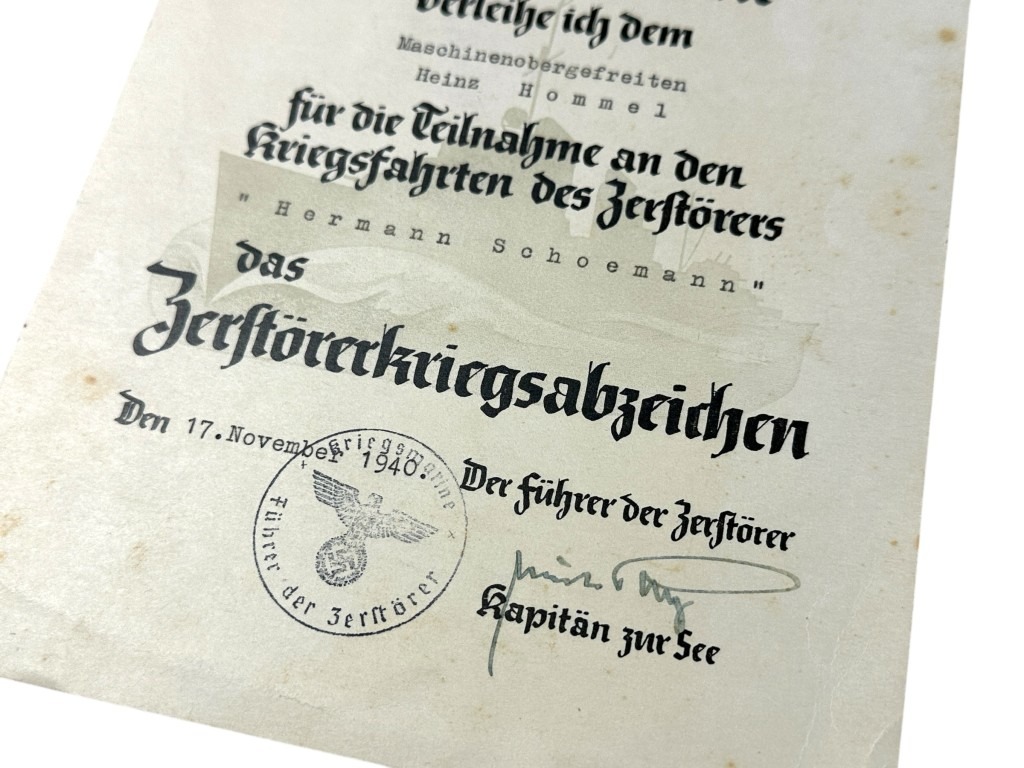 verleihe ich dem
Maschinenobergefreiten
Heinz Hommel
für die Teilnahme an den
Kriegsfahrten des Zerstörers
"Hermann Schoemann"
das
Zerstörerkriegsabzeichen
Den 17.November 1940.
Kriegsmarine
Führer der Zerstörer
Der Führer der Zerstörer
Kapitän zur See